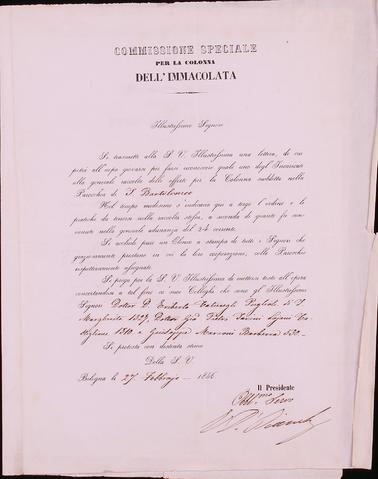 COMMISSIONE SPECIALE
PER LA COLONNA
DELL'IMMACOLATA
Illustrissimo Signore
Si trasmette alla S. V. Illustrissima una lettera, di cui
potrà all'uopo giovarsi per farsi riconoscere quale uno degli Incaricati
alla generale raccolta delle offerte per la Colonna suddetta nella
Parrocchia di S. Bartolomeo
Nel tempo medesimo s'indicava qui a tergo l'ordine e le
pratiche da tenersi nella raccolta stessa, a seconda di quanto fu con-
venuto nella generale adunanza del 24 corrente.
Si acclude pure un Elenco a stampa di tutti i Signori che
graziosamente prestano in ciò la loro cooperazione, colle Parrocchie
rispettivamente assegnate.
Si prega poi la S. V. Illustrissima di mettersi tosto all'opera
concertandosi a tal fine coi suoi Colleghi che sono gl'Illustrissimi
Signori Dottor
Margherita 1327. Dottor
1310 e Giuseppe Marconi Barberia 530.
Si protesta con distinta stima
Della S. V.
Bologna li 27 Febbrajo 1846.
Il Presidente
Obb.mo Servo